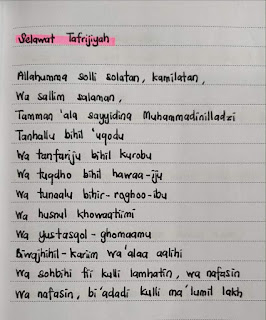 Selawat Tafrijiyah
Allahumma solli solatan, kamilatan,
Wa sallim salaman,
Tamman 'ala sayyidina Muhammadinilladzi
Tanhallu bihil 'uqodu
Wa tanfariju bihil kurobu
Wa tuqdho bihil hawaa-iju
Wa tunaalu bihir-roghoo-ibu
Wa husnul khowaatiimi
Wa yustasqol-ghomaamu
Biwajhihil-kariim wa'alaa aalihi
Wa sohbihi fii kulli lamhatin, wa nafasin
Wa nafasin, bi'adadi kulli ma'lumil lakh